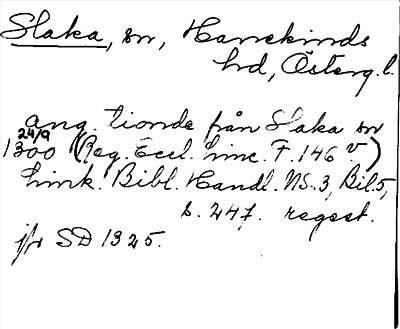 Slaka, sn, Hanekinds
hd, Österg. l.
ang. tionde från Slaka sn
24/9
1300 (Reg. Eccl. Linc. F. 146 v)
Link. Bibl. Handl. NS. 3, Bil. 5,
s. 247. regest.
jfr SD 1325.